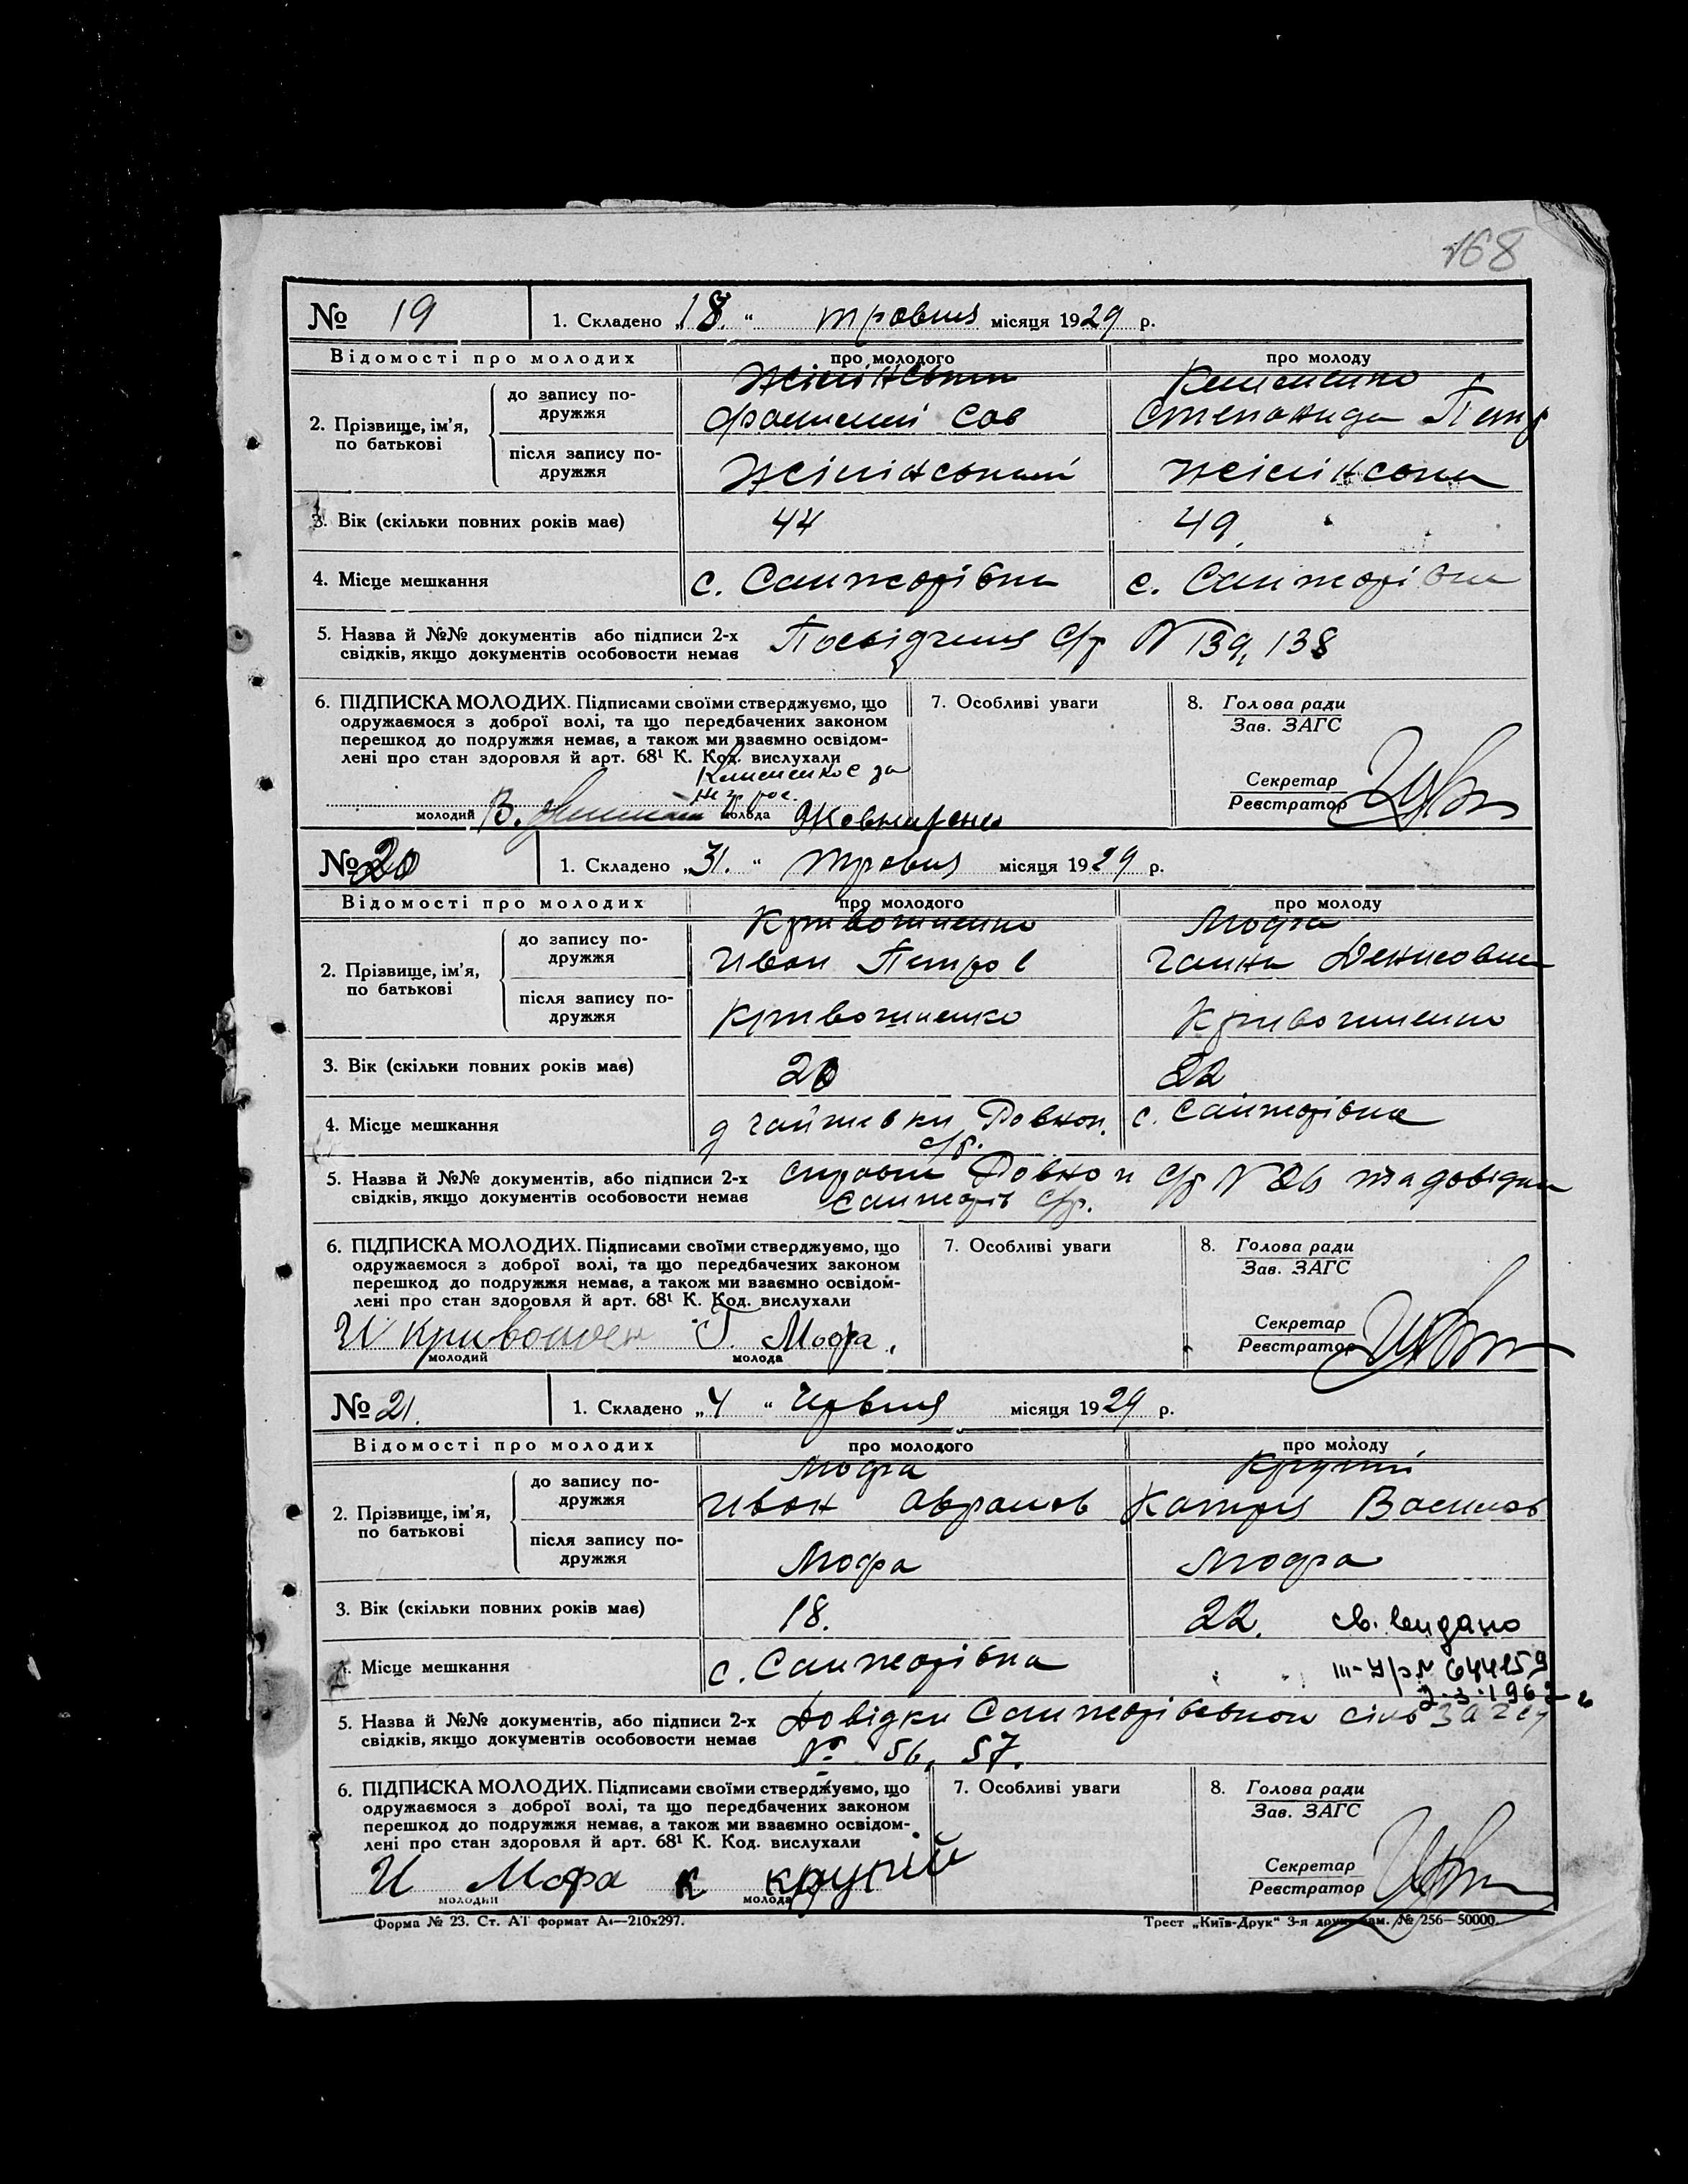 168
№ 19 1. Складено „18.“ травня місяця 1929 р.
Відомості про молодих про молодого про молоду
2. Прізвище, ім'я, по батькові
до запису подружжя
Степанида Петр
після запису подружжя
3. Вік (скільки повних років має) 44 49
4. Місце мешкання с. Санжарівка с. Санжарівка
5. Назва й №№ документів або підписи 2-х Посвідчення с/р N 139, 138
свідків, якщо документів особовости немає
6. ПІДПИСКА МОЛОДИХ. Підписами своїми стверджуємо, що
одружаємося з доброї волі, та що передбачених законом
перешкод до подружжя немає, а також ми взаємно освідом-
лені про стан здоровля й арт. 68¹ К. Код. вислухали
молодий молода
7. Особливі уваги
8. Голова ради
Зав. ЗАГС
Секретар
Реєстратор
№ 20 1. Складено „31.“ травня місяця 1929 р.
Відомості про молодих про молодого про молоду
2. Прізвище, ім'я, по батькові
до запису подружжя
Кривошиенко Мофа
Иван Петров Ганна Денисовна
після запису подружжя
Кривошиенко Кривошиенко
3. Вік (скільки повних років має) 20 22
4. Місце мешкання с. Санжарівка
с/р.
5. Назва й №№ документів, або підписи 2-х с/р N 26 та довідка
свідків, якщо документів особовости немає Санжарів с/р.
6. ПІДПИСКА МОЛОДИХ. Підписами своїми стверджуємо, що
одружаємося з доброї волі, та що передбачених законом
перешкод до подружжя немає, а також ми взаємно освідом-
лені про стан здоровля й арт. 68¹ К. Код. вислухали
И Кривошеен Г. Мофа.
молодий молода
7. Особливі уваги
8. Голова ради
Зав. ЗАГС
Секретар
Реєстратор
№ 21. 1. Складено „4“ червня місяця 1929 р.
Відомості про молодих про молодого про молоду
2. Прізвище, ім'я, по батькові
до запису подружжя
Мофа Крупій
Иван Аврамов Катря Василів
після запису подружжя
Мофа Мофа
3. Вік (скільки повних років має) 18. 22. св. видано
4. Місце мешкання с. Санжарівка " " III-УР № 644159
2.3.1962 г
5. Назва й №№ документів, або підписи 2-х Довідки Санжарівської
свідків, якщо документів особовости немає № 56, 57.
6. ПІДПИСКА МОЛОДИХ. Підписами своїми стверджуємо, що
одружаємося з доброї волі, та що передбачених законом
перешкод до подружжя немає, а також ми взаємно освідом-
лені про стан здоровля й арт. 68¹ К. Код. вислухали
И Мофа К Крупій
молодий молода
7. Особливі уваги
8. Голова ради
Зав. ЗАГС
Секретар
Реєстратор
Форма № 23. Ст. АТ формат А4—210х297. Трест „Київ-Друк“ 3-я друк. зам. № 256—50000.